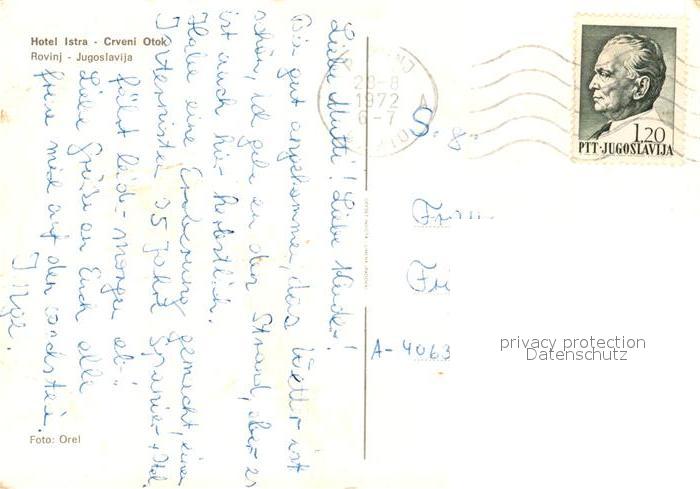 Hotel Istra - Crveni Otok
Rovinj - Jugoslavija
Liebe Mutti! Liebe Kinder!
Bin gut angekommen, das Wetter ist
schön, ich gehe an den Strand, aber es
ist auch hier herbstlich.
Habe eine Eroberung gemacht, einen
35 Jahre Spanier + Ital.
fährt leid- morgen ab!!
Liebe Grüße an Euch alle
freu mich auf den
Inge.
Foto: Orel
28-8
1972
6-7
1.20
PTT-JUGOSLAVIJA
S. 8
Fi
A-4063
privacy protection
Datenschutz